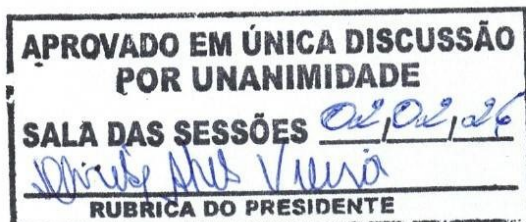 APROVADO EM ÚNICA DISCUSSÃO
POR UNANIMIDADE
SALA DAS SESSÕES 02,02,26
Alves Vieira
RUBRICA DO PRESIDENTE